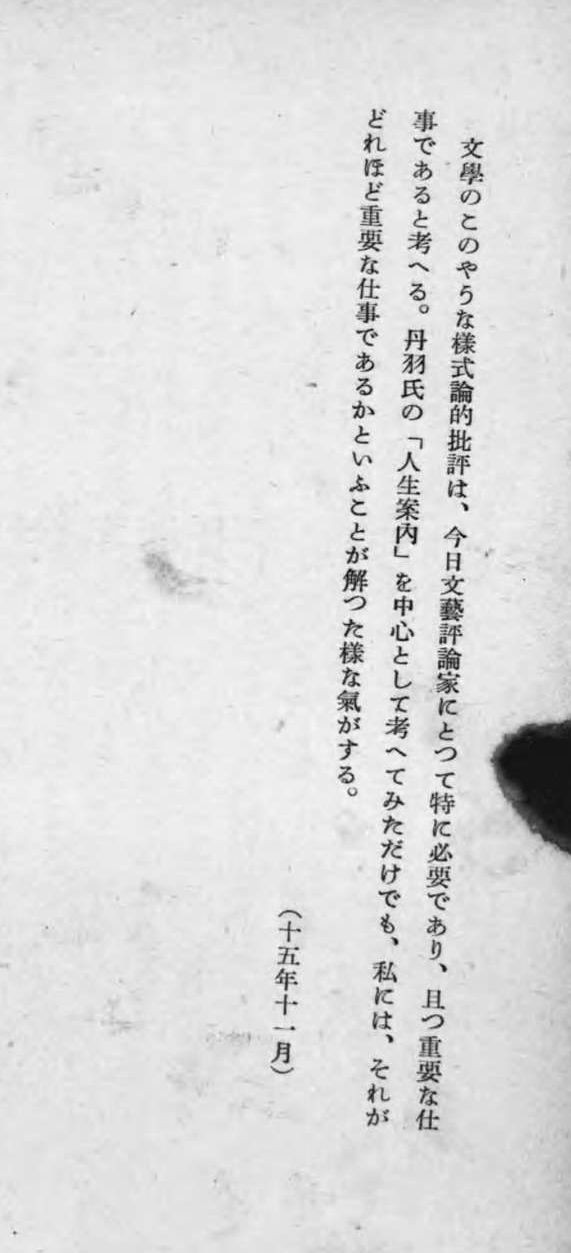 文學のこのやうな樣式論的批評は、今日文藝評論家にとつて特に必要であり、且つ重要な仕
事であると考へる。丹羽氏の「人生案內」を中心として考へてみただけでも、私には、それが
どれほど重要な仕事であるかといふことが解つた樣な氣がする。
（十五年十一月）